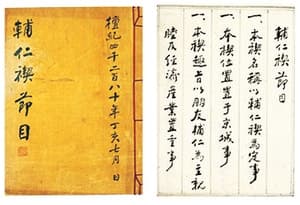 輔仁禊節目
檀紀四千二百八十年丁亥七月 日
輔仁禊節目
一、本禊名稱以輔仁禊為定事
一、本禊位置置于京城事
一、本禊趣旨以朋友輔仁為主親
睦及經濟産業置重事